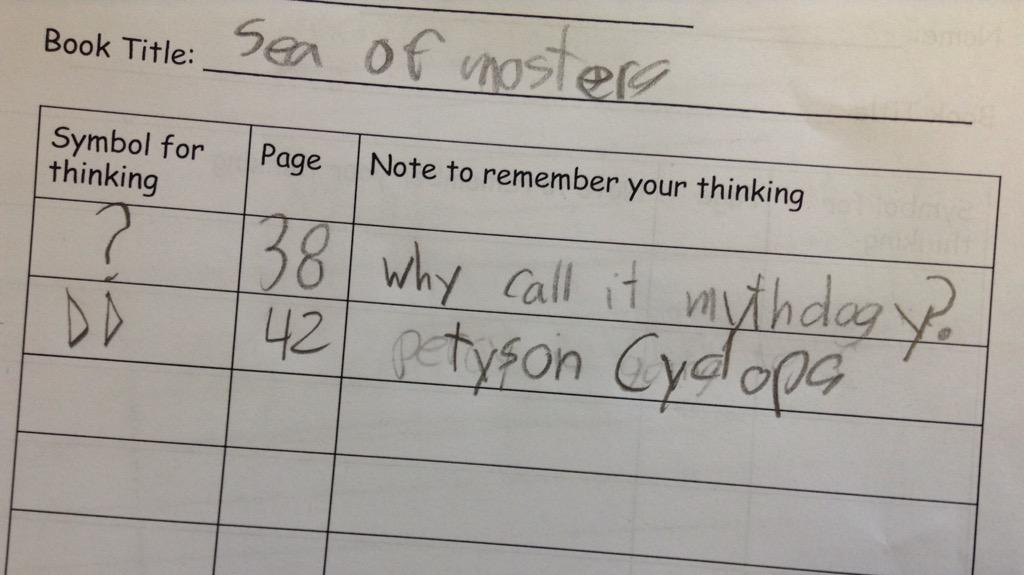 Book Title: Sea of mosters
Symbol for thinking Page Note to remember your thinking
? 38 why call it mythology?
DD 42 tyson Cyclops